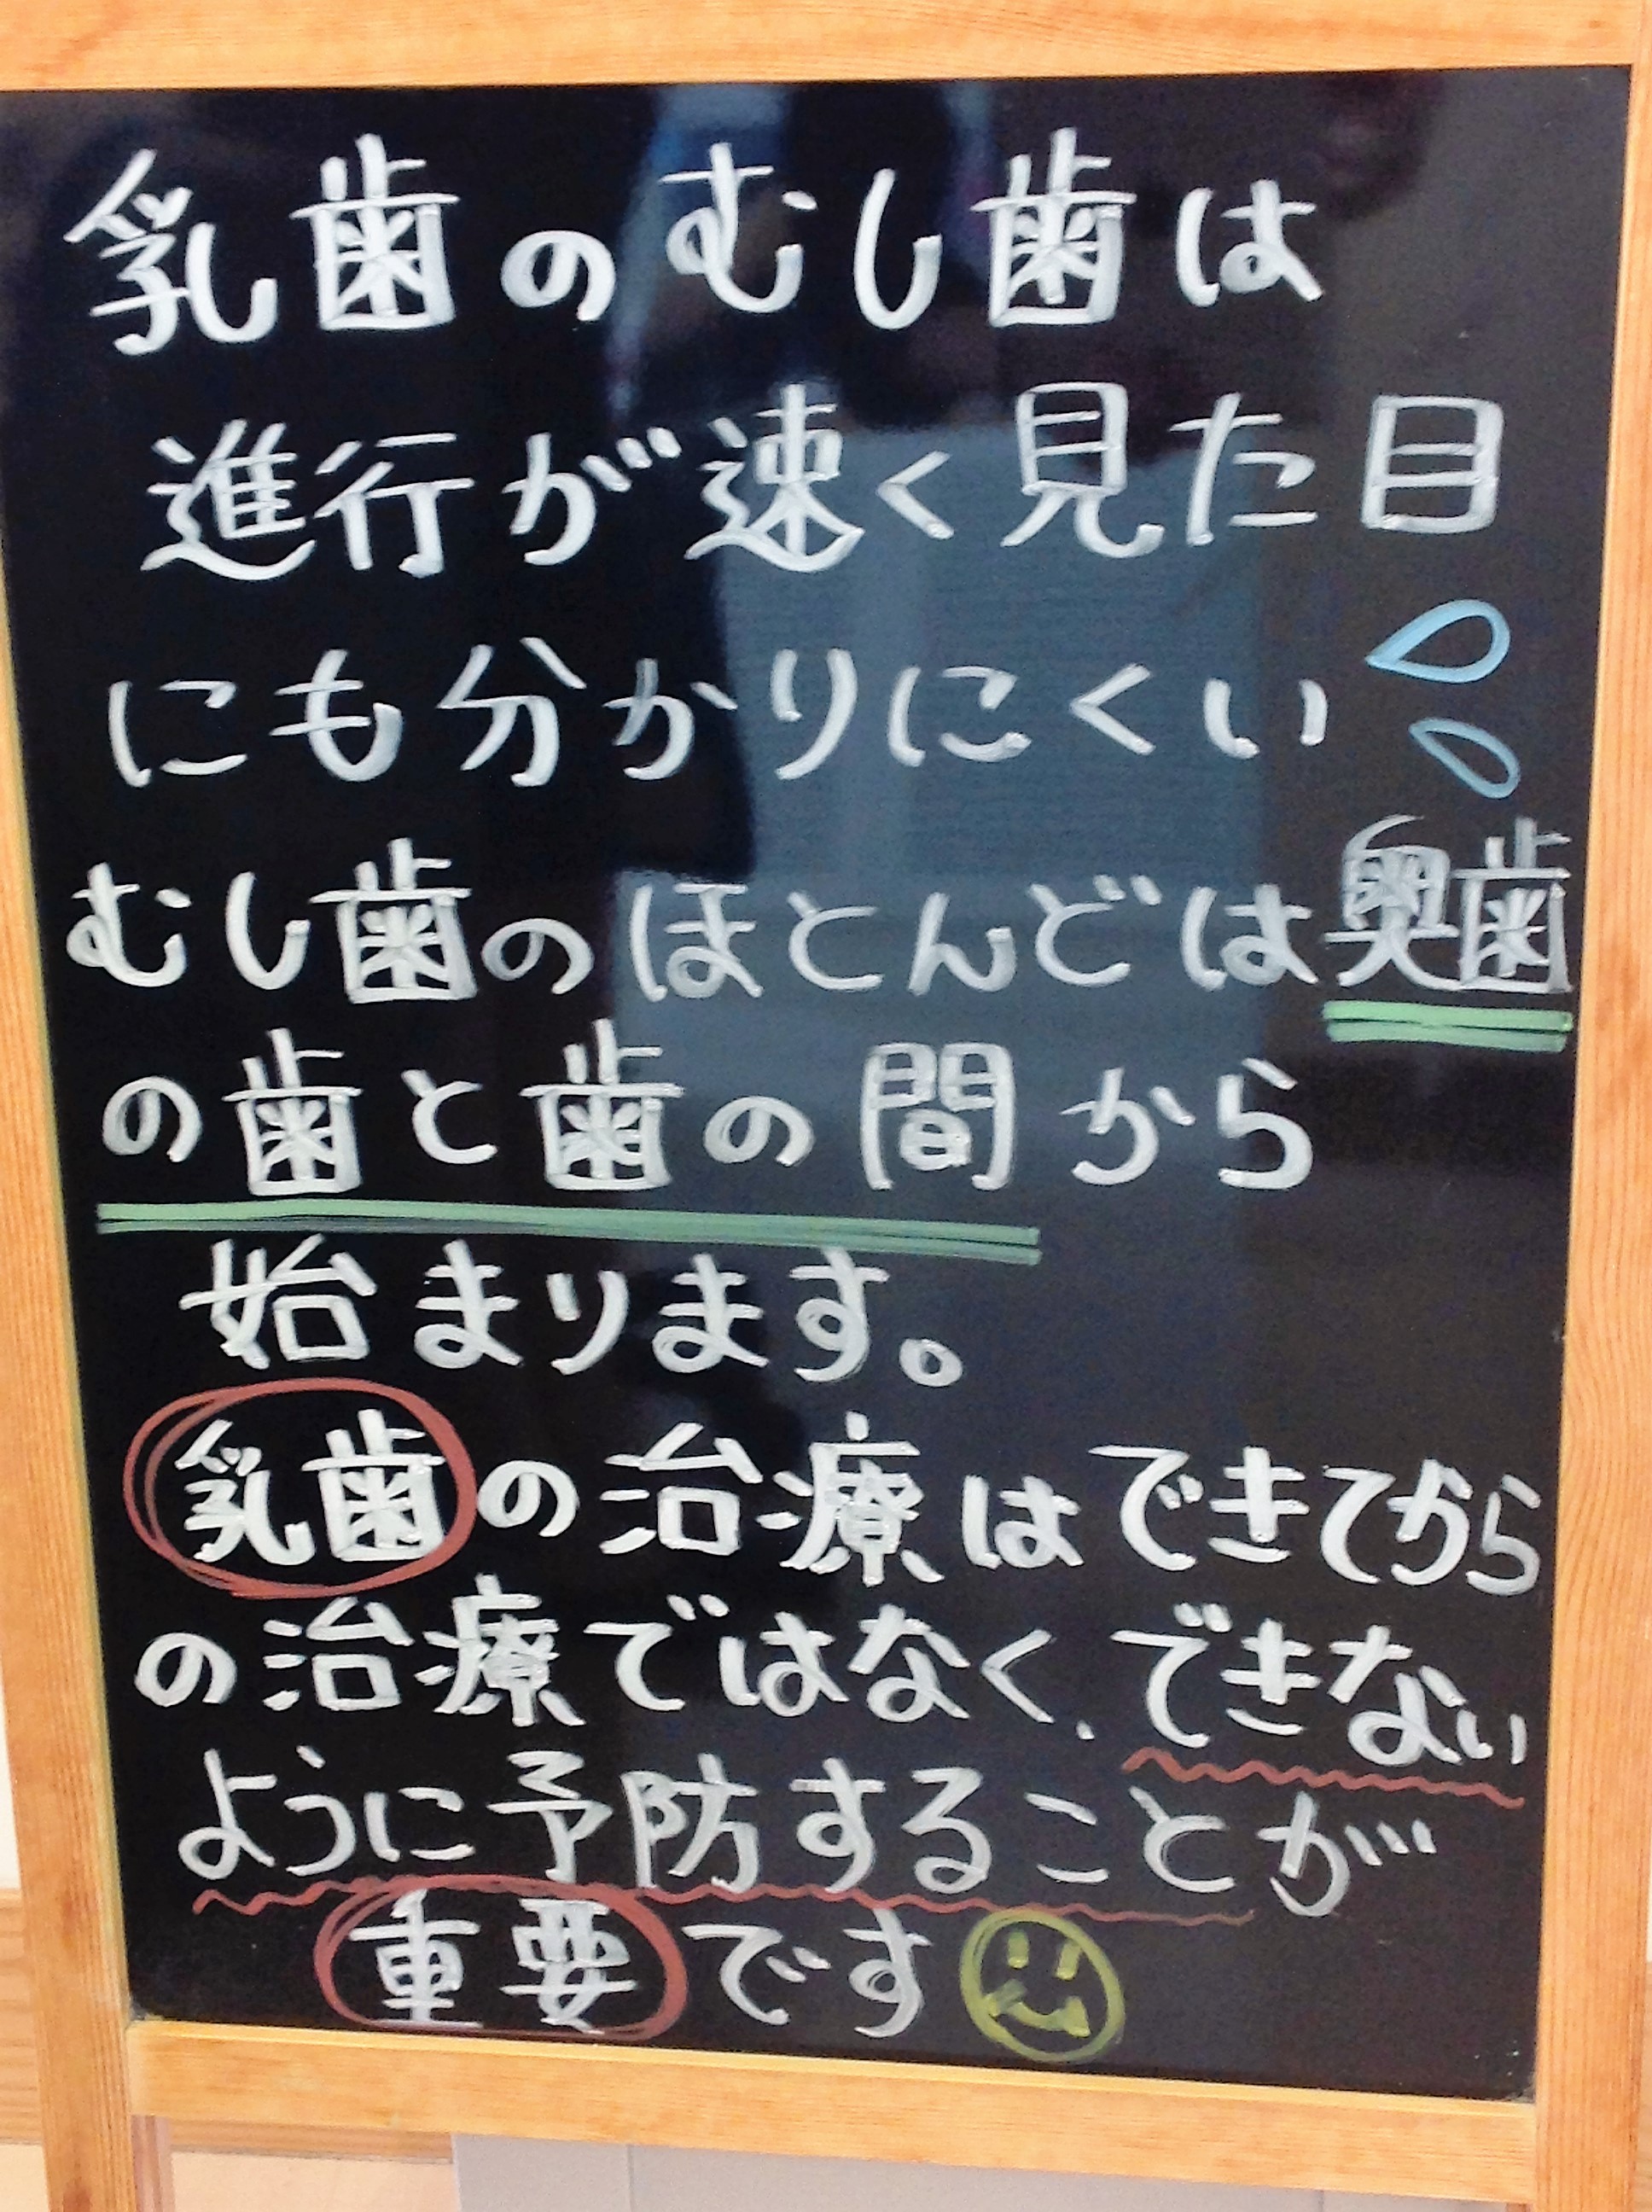 乳歯のむし歯は
進行が速く見た目
にも分かりにくい
むし歯のほとんどは奥歯
の歯と歯の間から
始まります。
乳歯の治療はできてから
の治療ではなく、できない
ように予防することが
重要です